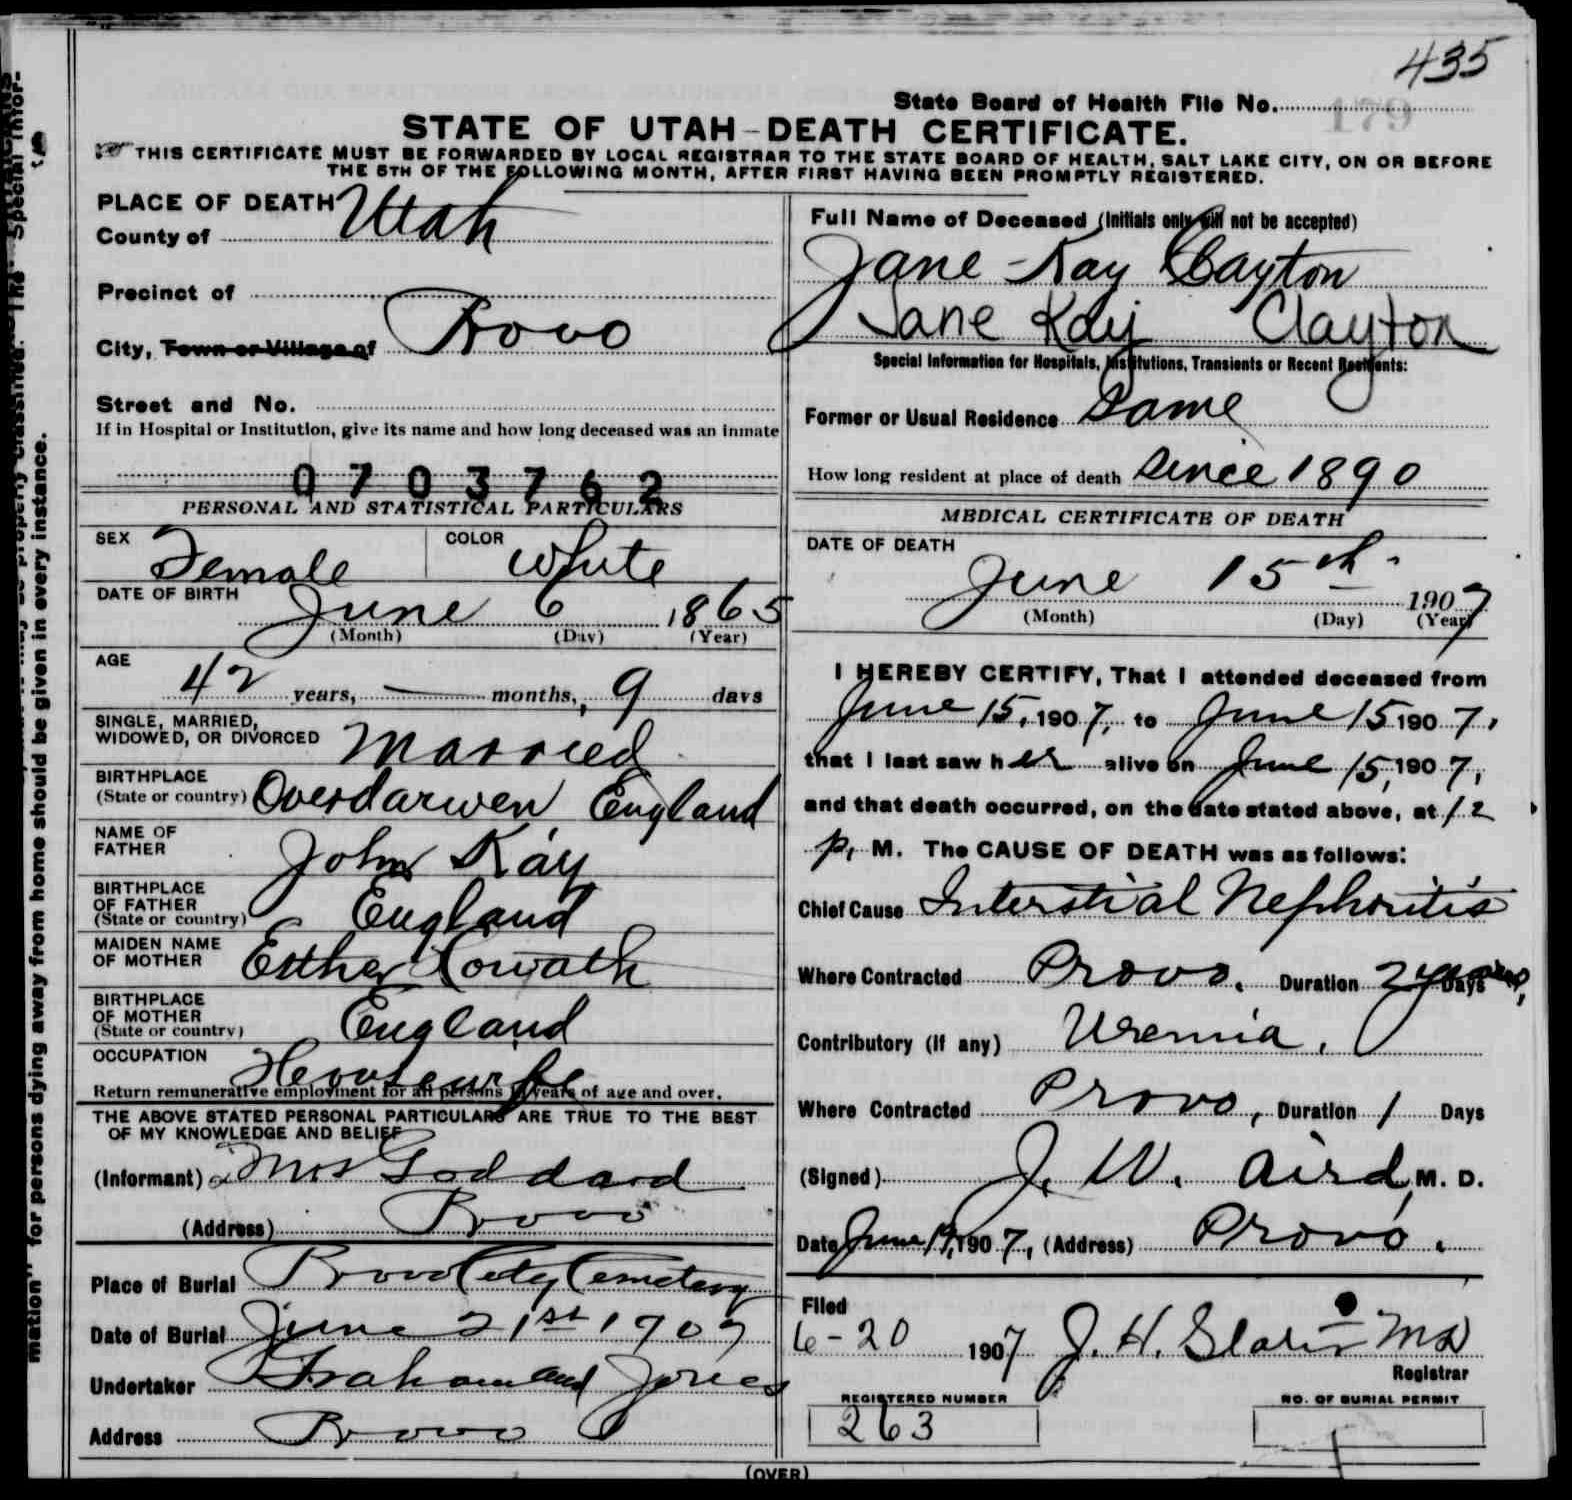 435
State Board of Health File No.
179
STATE OF UTAH-DEATH CERTIFICATE.
THIS CERTIFICATE MUST BE FORWARDED BY LOCAL REGISTRAR TO THE STATE BOARD OF HEALTH, SALT LAKE CITY, ON OR BEFORE
THE 5TH OF THE FOLLOWING MONTH, AFTER FIRST HAVING BEEN PROMPTLY REGISTERED.
PLACE OF DEATH
County of Utah
Precinct of
City, Town or Village of Provo
Street and No.
If in Hospital or Institution, give its name and how long deceased was an inmate
0703762
PERSONAL AND STATISTICAL PARTICULARS
SEX Female COLOR White
DATE OF BIRTH June 6 1865
(Month) (Day) (Year)
AGE 42 years, — months, 9 days
SINGLE, MARRIED,
WIDOWED, OR DIVORCED Married
BIRTHPLACE
(State or country) Overdarwen England
NAME OF
FATHER John Kay
BIRTHPLACE
OF FATHER
(State or country) England
MAIDEN NAME
OF MOTHER Esther
BIRTHPLACE
OF MOTHER
(State or country) England
OCCUPATION Housewife
Return remunerative employment for all persons years of age and over.
THE ABOVE STATED PERSONAL PARTICULARS ARE TRUE TO THE BEST
OF MY KNOWLEDGE AND BELIEF
(Informant) Mrs Goddard
(Address) Provo
Place of Burial Provo City Cemetery
Date of Burial June 21st 1907
Undertaker Graham and Jones
Address Provo
Full Name of Deceased (Initials only will not be accepted)
Jane Kay Clayton
Jane Kay Clayton
Special Information for Hospitals, Institutions, Transients or Recent Residents:
Former or Usual Residence Same
How long resident at place of death Since 1890
MEDICAL CERTIFICATE OF DEATH
DATE OF DEATH
June 15th 1907
(Month) (Day) (Year)
I HEREBY CERTIFY, That I attended deceased from
June 15, 1907, to June 15 1907,
that I last saw her alive on June 15, 1907,
and that death occurred, on the date stated above, at 12
p. M. The CAUSE OF DEATH was as follows:
Chief Cause Interstial Nephritis
Where Contracted Provo. Duration 2 years, Days
Contributory (if any) Uremia.
Where Contracted Provo, Duration 1 Days
(Signed) J. W. Aird, M. D.
Date June 1907, (Address) Provo.
Filed
6-20 1907 J. H. MD
Registrar
REGISTERED NUMBER
263
NO. OF BURIAL PERMIT
(OVER)
mation" for persons dying away from home should be given in every instance.